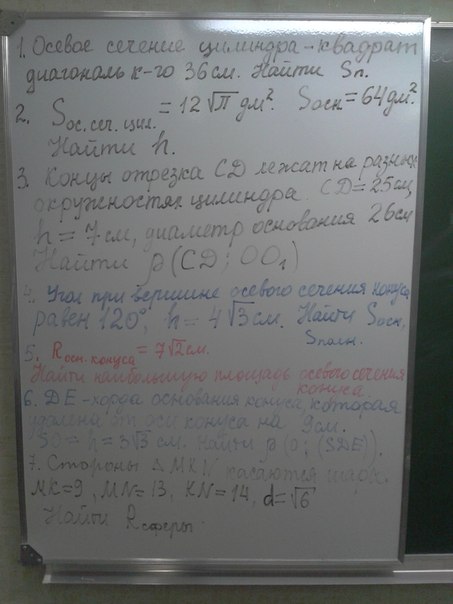 1. Осевое сечение цилиндра - квадрат
диагональ к-го 36 см. Найти Sп.
2. Sос.сеч.цил. = 12√π дм². Sосн = 64 дм².
Найти h.
3. Концы отрезка CD лежат на разных
окружностях цилиндра. CD = 25 см,
h = 7 см, диаметр основания 26 см
Найти ρ(CD; OO₁)
4. Угол при вершине осевого сечения конуса
равен 120°, h = 4√3 см. Найти Sосн,
Sполн.
5. Rосн.конуса = 7√2 см.
Найти наибольшую площадь осевого сечения
конуса
6. DE - хорда основания конуса, которая
удалена от оси конуса на 9 см.
SO = h = 3√3 см. Найти ρ(o; (SDE)).
7. Стороны △ MKN касаются шара.
MK = 9, MN = 13, KN = 14, d = √6
Найти Rсферы.